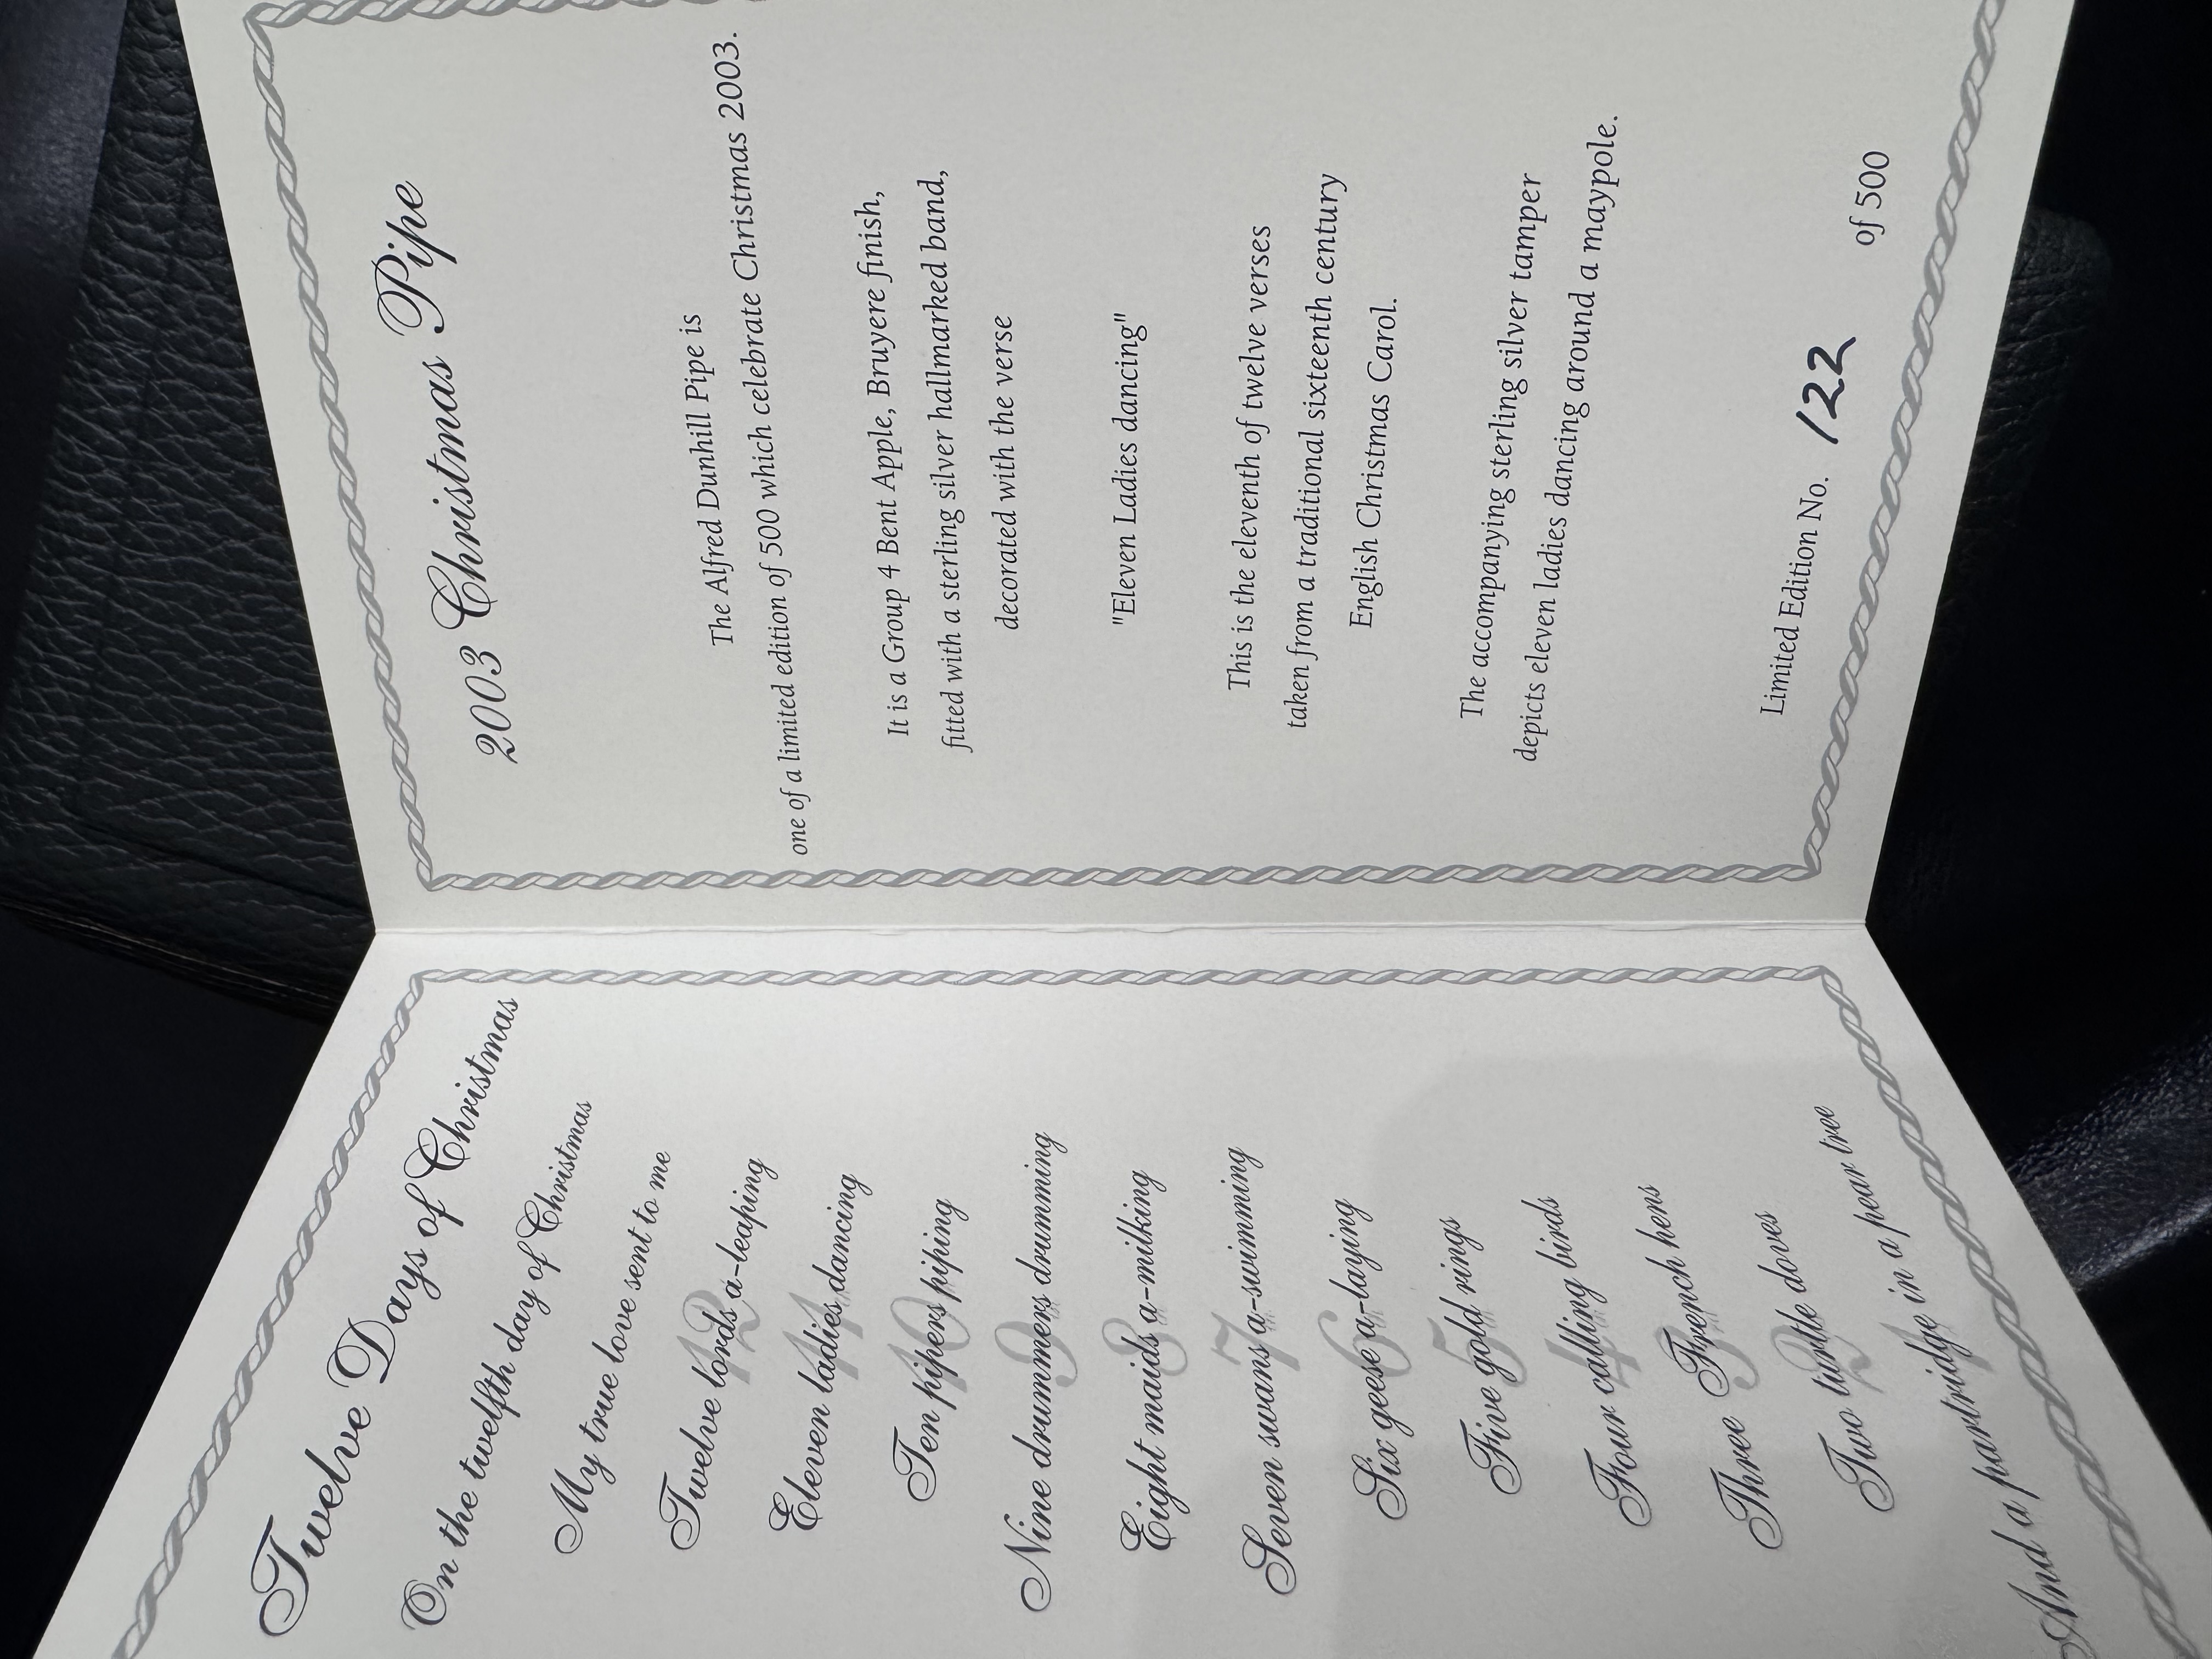 Twelve Days of Christmas
On the twelfth day of Christmas
My true love sent to me
12
Twelve lords a-leaping
11
Eleven ladies dancing
10
Ten pipers piping
9
Nine drummers drumming
8
Eight maids a-milking
7
Seven swans a-swimming
6
Six geese a-laying
5
Five gold rings
4
Four calling birds
3
Three French hens
2
Two turtle doves
1
And a partridge in a pear tree
2003 Christmas Pipe
The Alfred Dunhill Pipe is
one of a limited edition of 500 which celebrate Christmas 2003.
It is a Group 4 Bent Apple, Bruyere finish,
fitted with a sterling silver hallmarked band,
decorated with the verse
"Eleven Ladies dancing"
This is the eleventh of twelve verses
taken from a traditional sixteenth century
English Christmas Carol.
The accompanying sterling silver tamper
depicts eleven ladies dancing around a maypole.
Limited Edition No. 122 of 500